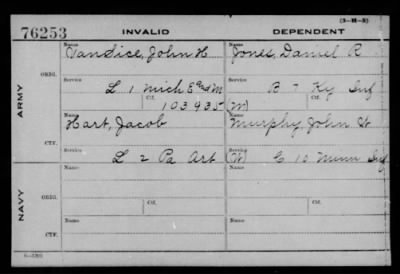 (3-H-3)
76253 INVALID DEPENDENT
ARMY
ORIG.
Name Name
Vandice, John H Jones, Daniel R
Service Service
L 1 Mich E M B 7 Ky Inf
Ctf. Ctf.
103935 (M)
CTF.
Name Name
Hart, Jacob Murphy, John
Service Service
L 2 Pa Art (W) C 10 Minn Inf
NAVY
ORIG.
Name Name
Service Service
Ctf. Ctf.
CTF.
Name Name